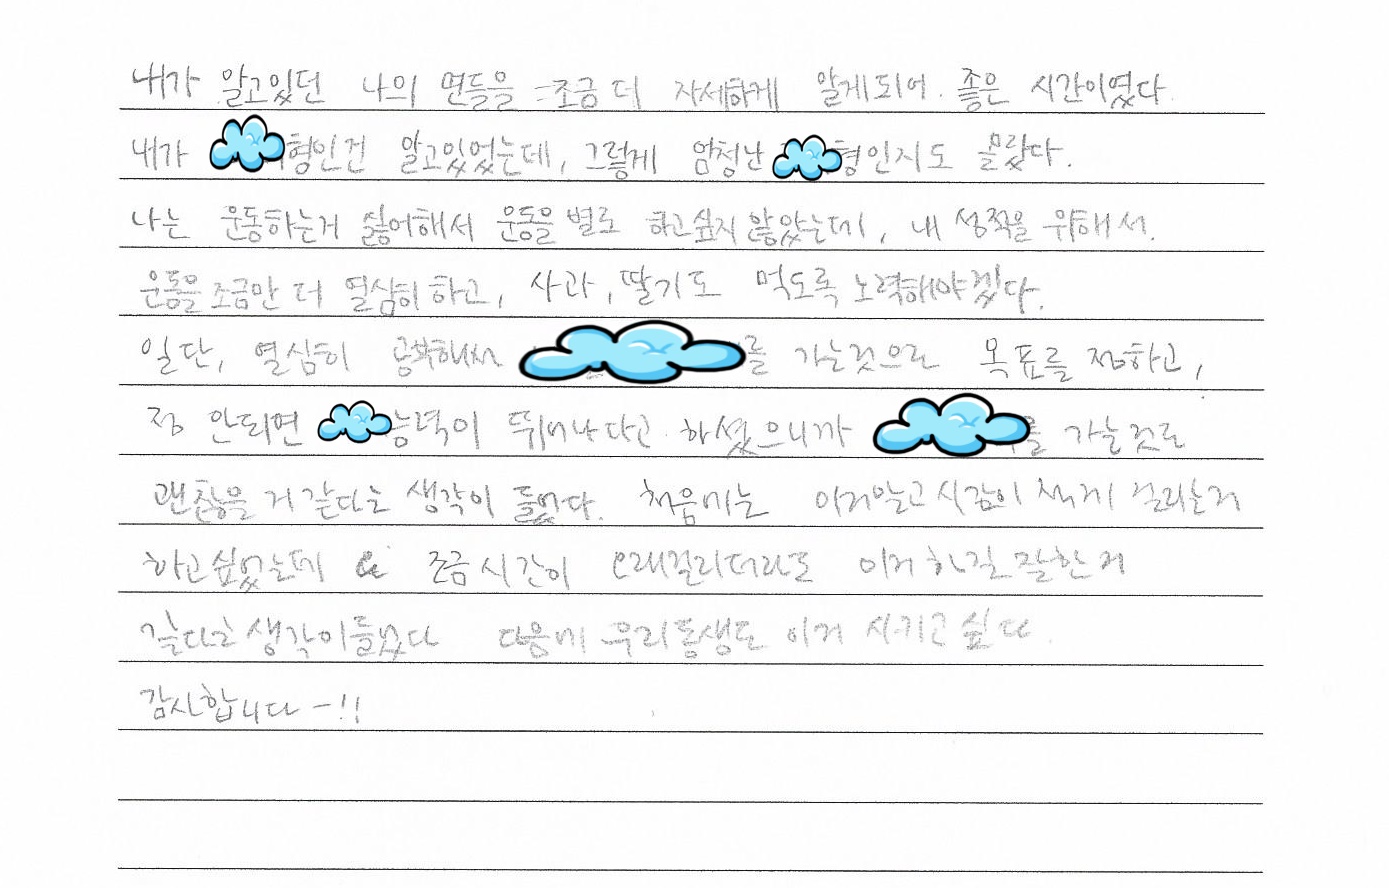 내가 알고있던 나의 면들을 조금 더 자세하게 알게되어 좋은 시간이였다
내가 형인건 알고있었는데, 그렇게 엄청난 형인지도 몰랐다.
나는 운동하는거 싫어해서 운동을 별로 하고싶지 않았는데, 내 성적을 위해서.
운동을 조금만 더 열심히 하고, 사과, 딸기도 먹도록 노력해야겠다.
일단, 열심히 공부해서 를 가는것으로 목표를 정하고,
정 안되면 능력이 뛰어나다고 하셨으니까 를 가는것도
괜찮을 거 같다는 생각이 들었다. 처음에는 이거알고 시간이 걸리는거
하고싶었는데 조금 시간이 오래걸리더라도 이거 하길 잘한 거
같다고 생각이들었다 다음에 우리동생도 이거 시키고 싶다.
감사합니다-!!